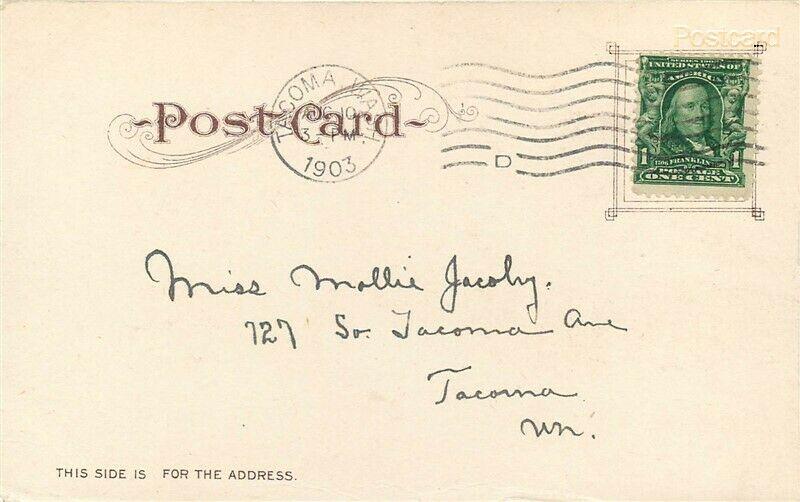 Postcard
TACOMA WASH.
AUG 10
3 - PM
1903
D
-Post Card-
SERIES 1902
UNITED STATES OF
AMERICA
1706 FRANKLIN
1 POSTAGE 1
ONE CENT
Miss Mollie Jacoby.
727 So. Tacoma Ave
Tacoma
Wn.
THIS SIDE IS FOR THE ADDRESS.